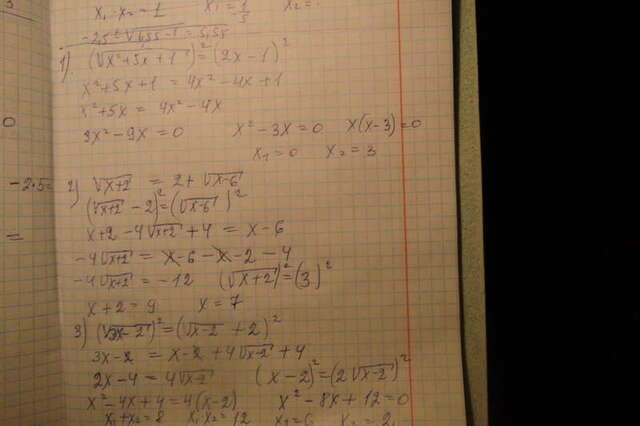 x₁ · x₂ = 1   x₁ = 1/5   x₂ =
1) (√(x²+5x+1))² = (2x-1)²
x²+5x+1 = 4x²-4x+1
x²+5x = 4x²-4x
3x²-9x = 0   x²-3x = 0   x(x-3) = 0
x₁ = 0   x₂ = 3
2) √(x+2) = 2+√(x-6)
(√(x+2) - 2)² = (√(x-6))²
x+2-4√(x+2)+4 = x-6
-4√(x+2) = x-6-x-2-4
-4√(x+2) = -12   (√(x+2))² = (3)²
x+2 = 9   x = 7
3) (√(3x-2))² = (√(x-2) + 2)²
3x-2 = x-2+4√(x-2)+4
2x-4 = 4√(x-2)   (x-2)² = (2√(x-2))²
x²-4x+4 = 4(x-2)   x²-8x+12 = 0
x₁+x₂ = 8   x₁x₂ = 12   x₁ = 6   x₂ = 2